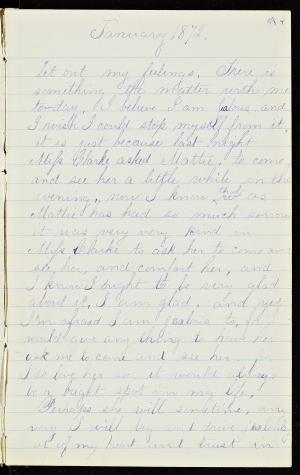 January 1872.
let out my feelings. There is
something the matter with me
to-day. I believe I am jealous. and
I wish I could stop myself from it,
it is just because last night
Miss Clarke asked Mattie to come
and see her a little while in the
evening, now I know that as
Mattie has had so much sorrow
it was very very kind in
Miss Clarke to ask her to come and
see her, and comfort her, and
I know I ought to be very glad
about it, I am glad. and yet
I'm afraid I am jealous to, for I
would give any thing to have her
ask me to come and see her, for
I so love her so, it would always
be a bright spot in my life.
Perhaps she will sometime, any
way I will try and drive jealousy
out of my heart and trust in